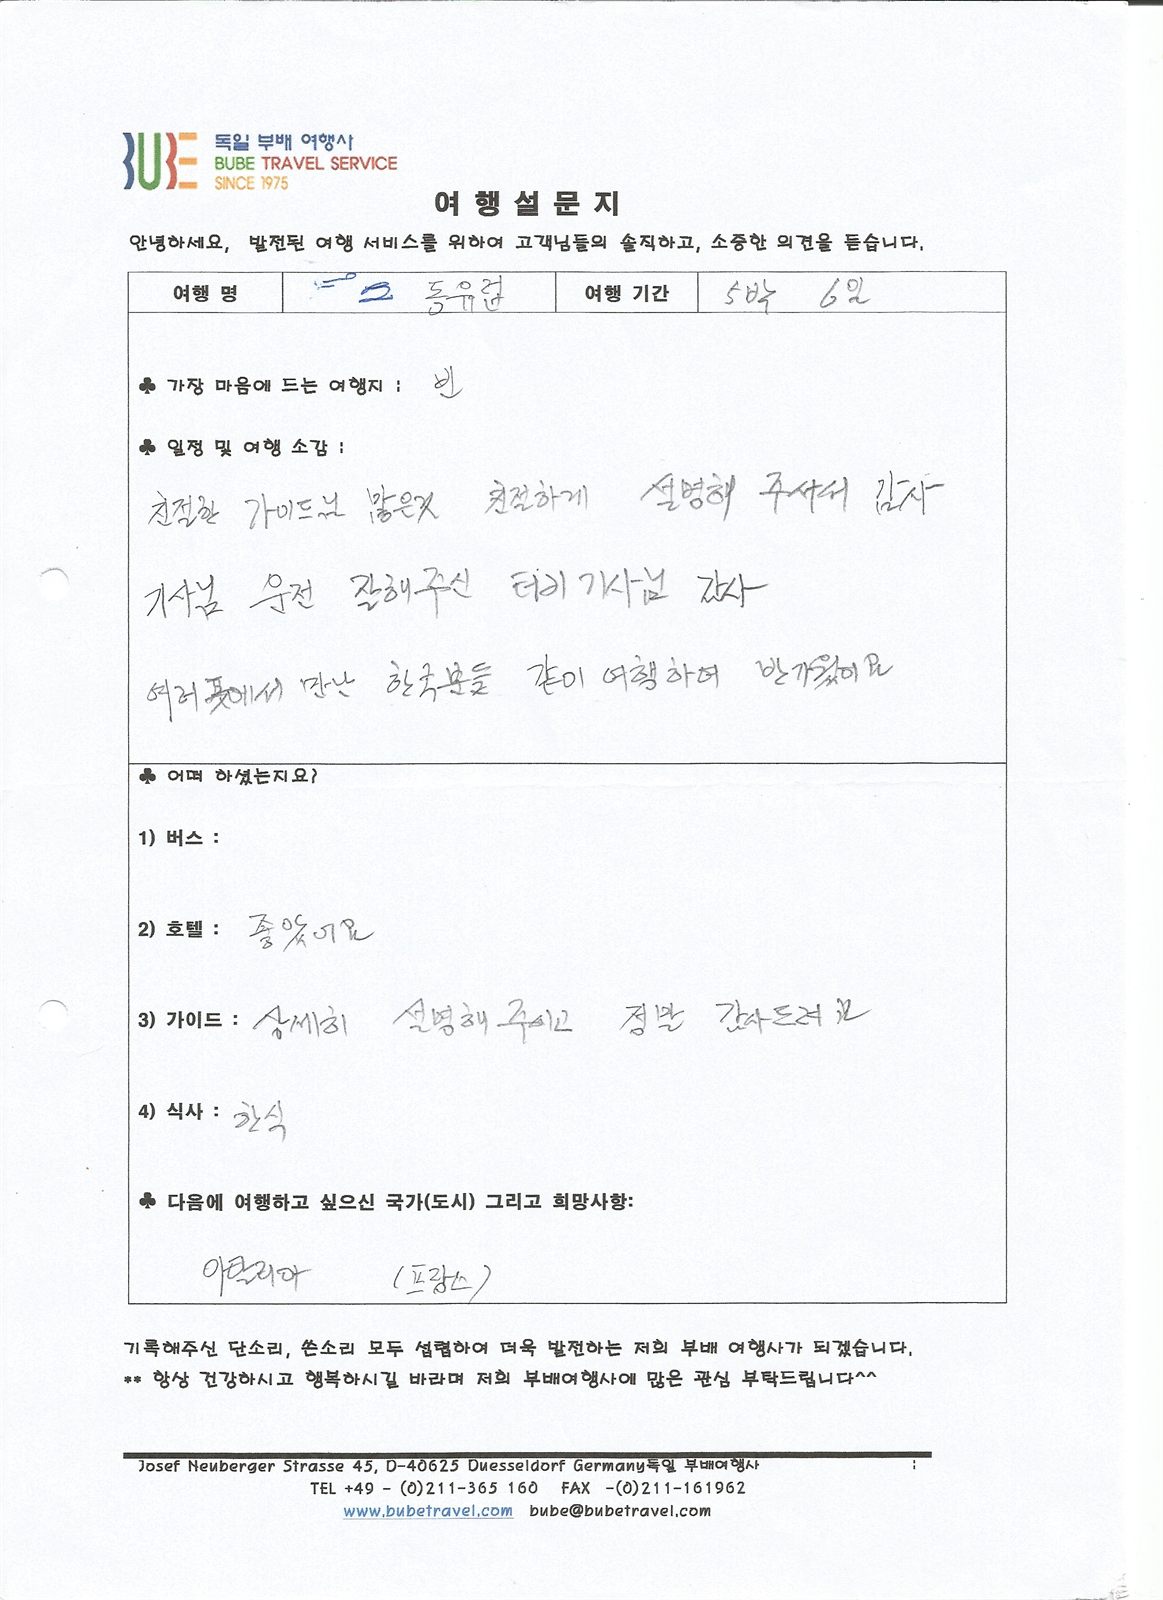 BUBE 독일 부배 여행사
BUBE TRAVEL SERVICE
SINCE 1975
여 행 설 문 지
안녕하세요, 발전된 여행 서비스를 위하여 고객님들의 솔직하고, 소중한 의견을 듣습니다.
여행 명 동유럽 여행 기간 5박 6일
♣ 가장 마음에 드는 여행지 : 빈
♣ 일정 및 여행 소감 :
친절한 가이드님 많은것 친절하게 설명해 주셔서 감사
기사님 운전 잘해주신 기사님 감사
여러 만난 한국분들 같이 여행하여 반가웠어요
♣ 어떠 하셨는지요?
1) 버스 :
2) 호텔 : 좋았어요
3) 가이드 : 상세히 설명해 정말 감사드려요
4) 식사 : 한식
♣ 다음에 여행하고 싶으신 국가(도시) 그리고 희망사항:
이탈리아 (프랑스)
기록해주신 단소리, 쓴소리 모두 섭렵하여 더욱 발전하는 저희 부배 여행사가 되겠습니다.
** 항상 건강하시고 행복하시길 바라며 저희 부배여행사에 많은 관심 부탁드립니다^^
Josef Neuberger Strasse 45, D-40625 Duesseldorf Germany독일 부배여행사
TEL +49 - (0)211-365 160 FAX -(0)211-161962
www.bubetravel.com bube@bubetravel.com